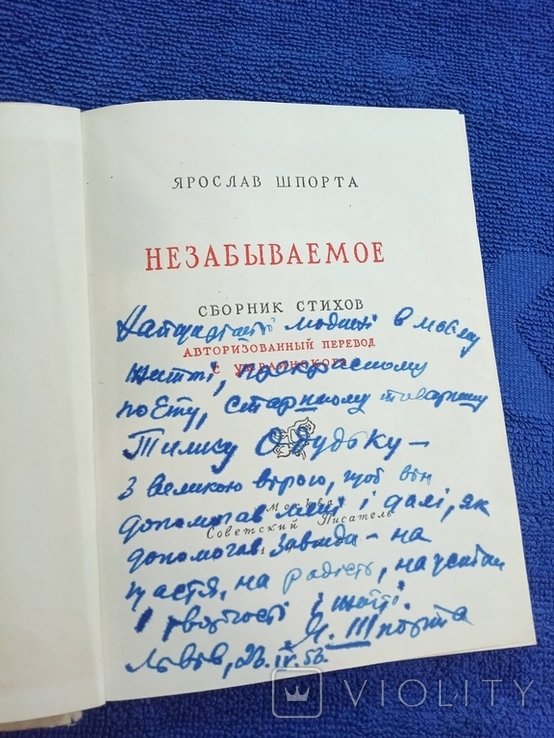 ЯРОСЛАВ ШПОРТА
НЕЗАБЫВАЕМОЕ
СБОРНИК СТИХОВ
АВТОРИЗОВАННЫЙ ПЕРЕВОД
С УКРАИНСКОГО
Москва
Советский Писатель
людині в моєму
житті, прекрасному
поету, старшому товаришу
Одудьку —
З великою вірою, щоб він
допомагав мені і далі, як
допомагав завжди — на
щастя, на радість, на успіхи
в творчості і житті.
Я. Шпорта
Львів, 23.IV.53.
VIOLITY